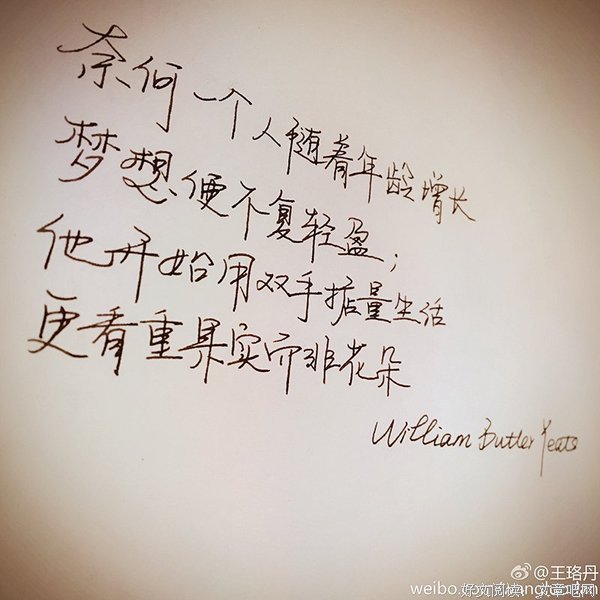 奈何一个人随着年龄增长
梦想便不复轻盈；
他开始用双手掂量生活
更看重果实而非花朵
William Butler Yeats
@王珞丹
weibo.com/
好文阅读 文章吧网